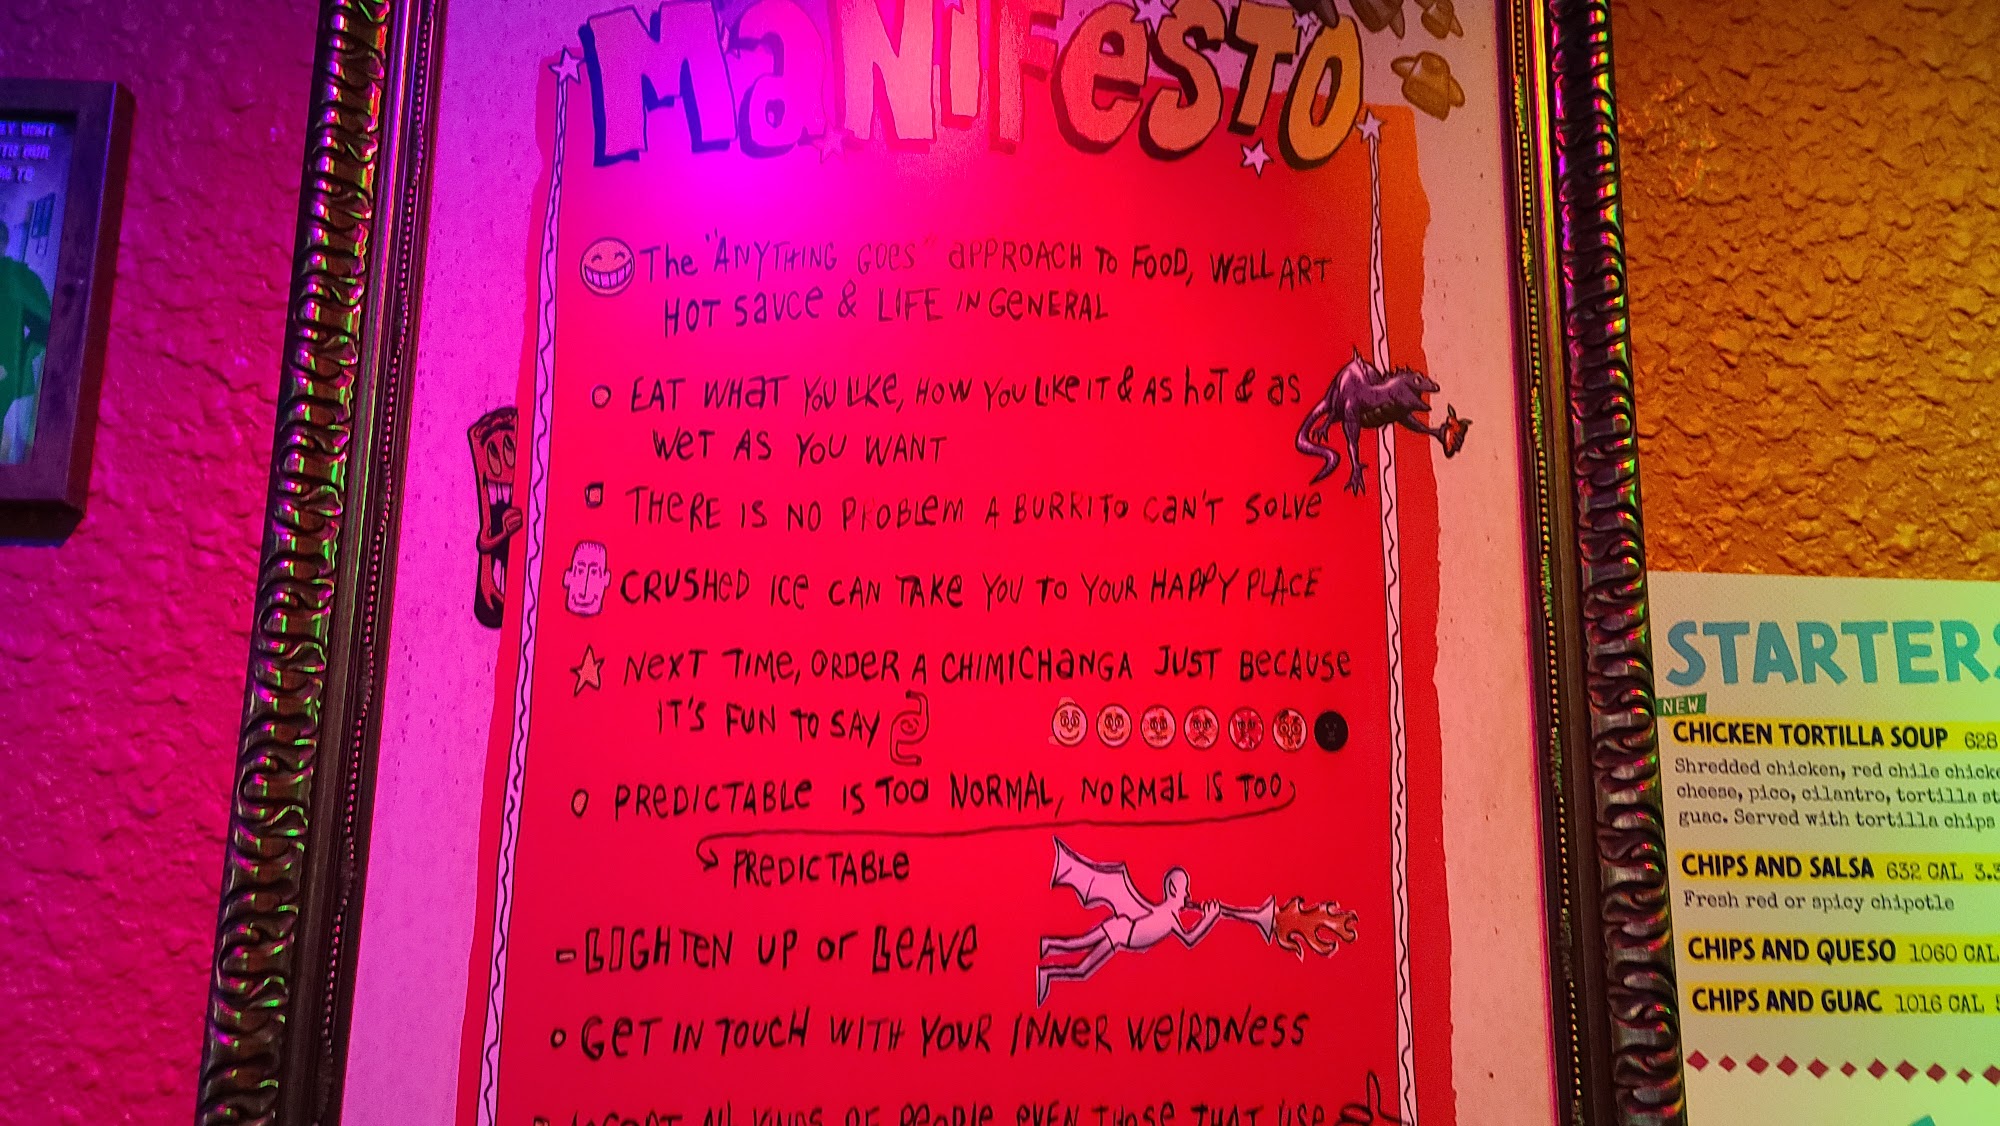 MANIFESTO
THE "ANYTHING GOES" APPROACH TO FOOD, WALL ART
HOT SAUCE & LIFE IN GENERAL
EAT WHAT YOU LIKE, HOW YOU LIKE IT & AS HOT & AS
WET AS YOU WANT
THERE IS NO PROBLEM A BURRITO CAN'T SOLVE
CRUSHED ICE CAN TAKE YOU TO YOUR HAPPY PLACE
NEXT TIME, ORDER A CHIMICHANGA JUST BECAUSE
IT'S FUN TO SAY
PREDICTABLE IS TOO NORMAL, NORMAL IS TOO
PREDICTABLE
- LIGHTEN UP OR LEAVE
GET IN TOUCH WITH YOUR INNER WEIRDNESS
ACCEPT ALL KINDS OF PEOPLE EVEN THOSE THAT USE
STARTERS
NEW
CHICKEN TORTILLA SOUP 628
Shredded chicken, red chile
cheese, pico, cilantro, tortilla
guac. Served with tortilla chips
CHIPS AND SALSA 632 CAL 3.3
Fresh red or spicy chipotle
CHIPS AND QUESO 1060 CAL
CHIPS AND GUAC 1016 CAL